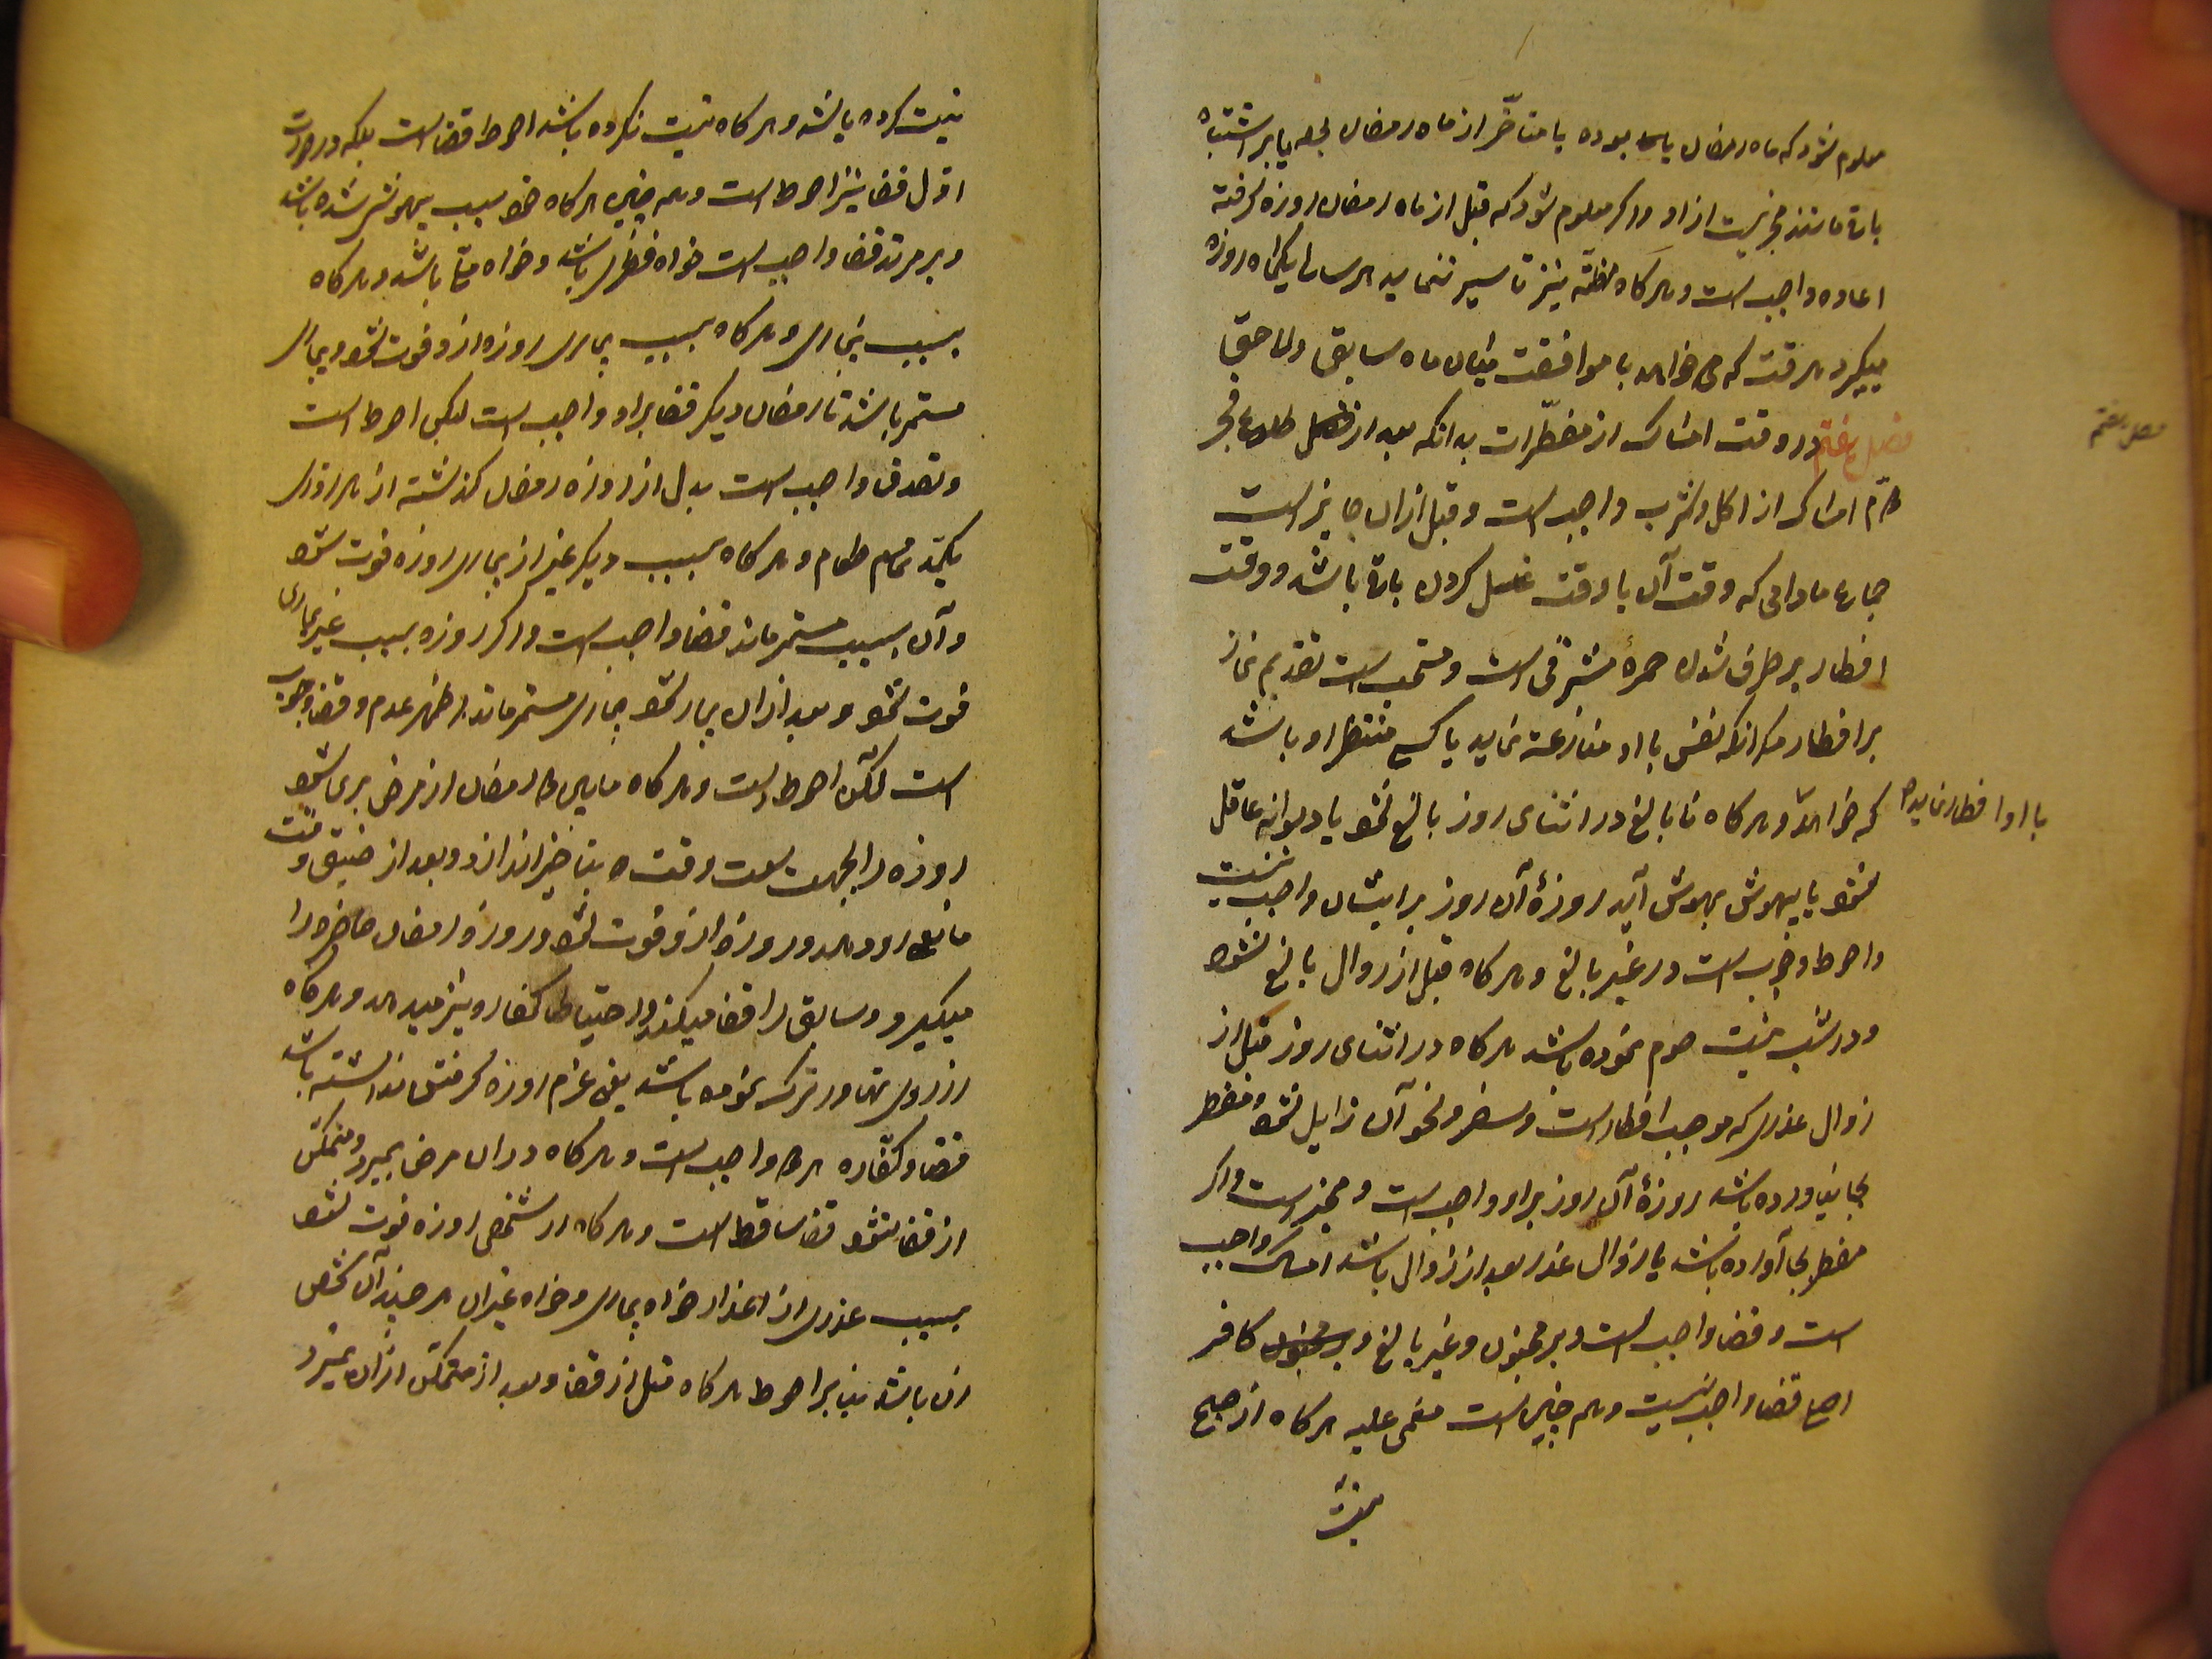 معلوم نشود که ماه رمضان یا بوده یا متأخر از ماه رمضان بوده یا بر اشتباه
باقی ماند مجزیست از او و اگر معلوم شود که قبل از ماه رمضان روزه گرفته
اعاده واجب است و هرگاه مظنه نیز تاسیر ننماید هر سال یکماه روزه
میگیرد هر وقت که می خواهد با موافقت میان ماه سابق و لاحق
فصل هفتم در وقت امساک از مفطرات بدانکه بعد از طلوع فجر
دوّم امساک از اکل و شرب واجب است و قبل از ان جایز است
جماع مادامی که وقت آن با وقت غسل کردن باقی باشد و وقت
افطار بر طرف شدن حمرۀ مشرقی است و مستحب است تقدیم نماز
بر افطار مگر انکه نفس با او منازعه نماید یا کسی منتظر او باشد
که خواهد و هرگاه نابالغ در اثنای روز بالغ شود یا دیوانه عاقل
با او افطار نماید
شود یا بیهوش بهوش آید روزۀ آن روز بر ایشان واجب نیست
و احوط وجوب است در غیر بالغ و هرگاه قبل از زوال بالغ شود
و در شب نیت صوم نموده باشد هرگاه در اثنای روز قبل از
زوال عذری که موجب افطار است و سفر و نحو آن زایل شود و مفطر
بجا نیاورده باشد روزۀ آن روز بر او واجب است و مجزیست و اگر
مفطر بجا آورده باشد یا زوال عذر بعد از زوال باشد امساک واجب
است و قضا واجب است و بر مجنون و غیر بالغ و بر کافر
اصلی قضا واجب نیست و هم چنین است مغمی علیه هرگاه از صبح
فصل هفتم
نیت کرده باشد و هرگاه نیت نکرده باشد احوط قضا است بلکه در صورت
اوّل قضا نیز احوط است و هم چنین هرگاه خود سبب بیهوشی شده باشد
و بر مرتد قضا واجب است خواه فطری باشد و خواه ملّی باشد و هرگاه
بسبب بیماری و هرگاه بسبب بیماری روزه از او فوت شود و بیماری
مستمر باشد تا رمضان دیگر قضا بر او واجب است لیکن احوط است
و تصدق واجب است بدل از روزه رمضان گذشته از هر روزی
یکمد تمام طعام و هرگاه بسبب دیگر غیر از بیماری روزه فوت شود
و آن سبب مستمر ماند قضا واجب است و اگر روزه بسبب غیر بیماری
فوت شود و بعد از ان بیمار شود بیماری مستمر ماند اظهر عدم و قضا وجوب
است لکن احوط است و هرگاه مابین دو رمضان از مرض بری شود
روزه را بجهت سعت وقت بتاخیر اندازد و بعد از ضیق وقت
مانعی رو دهد و روزه از او فوت شود روزۀ رمضان حاضر را
میگیرد و سابق را قضا میکند و احتیاطا کفاره نیز میدهد و هرگاه
از روی تهاون ترک نموده باشد یعنی عزم روزه گرفتن نداشته باشد
قضا و کفاره هر دو واجب است و هرگاه در ان مرض بمیرد و متمکن
از قضا نشود قضا ساقط است و هرگاه از شخصی روزه فوت شود
بسبب عذری از اعذار خواه بیماری و خواه غیر ان هر چند آن شخص
زن باشد بنا بر احوط هرگاه قبل از قضا و بعد از متمکن از ان بمیرد